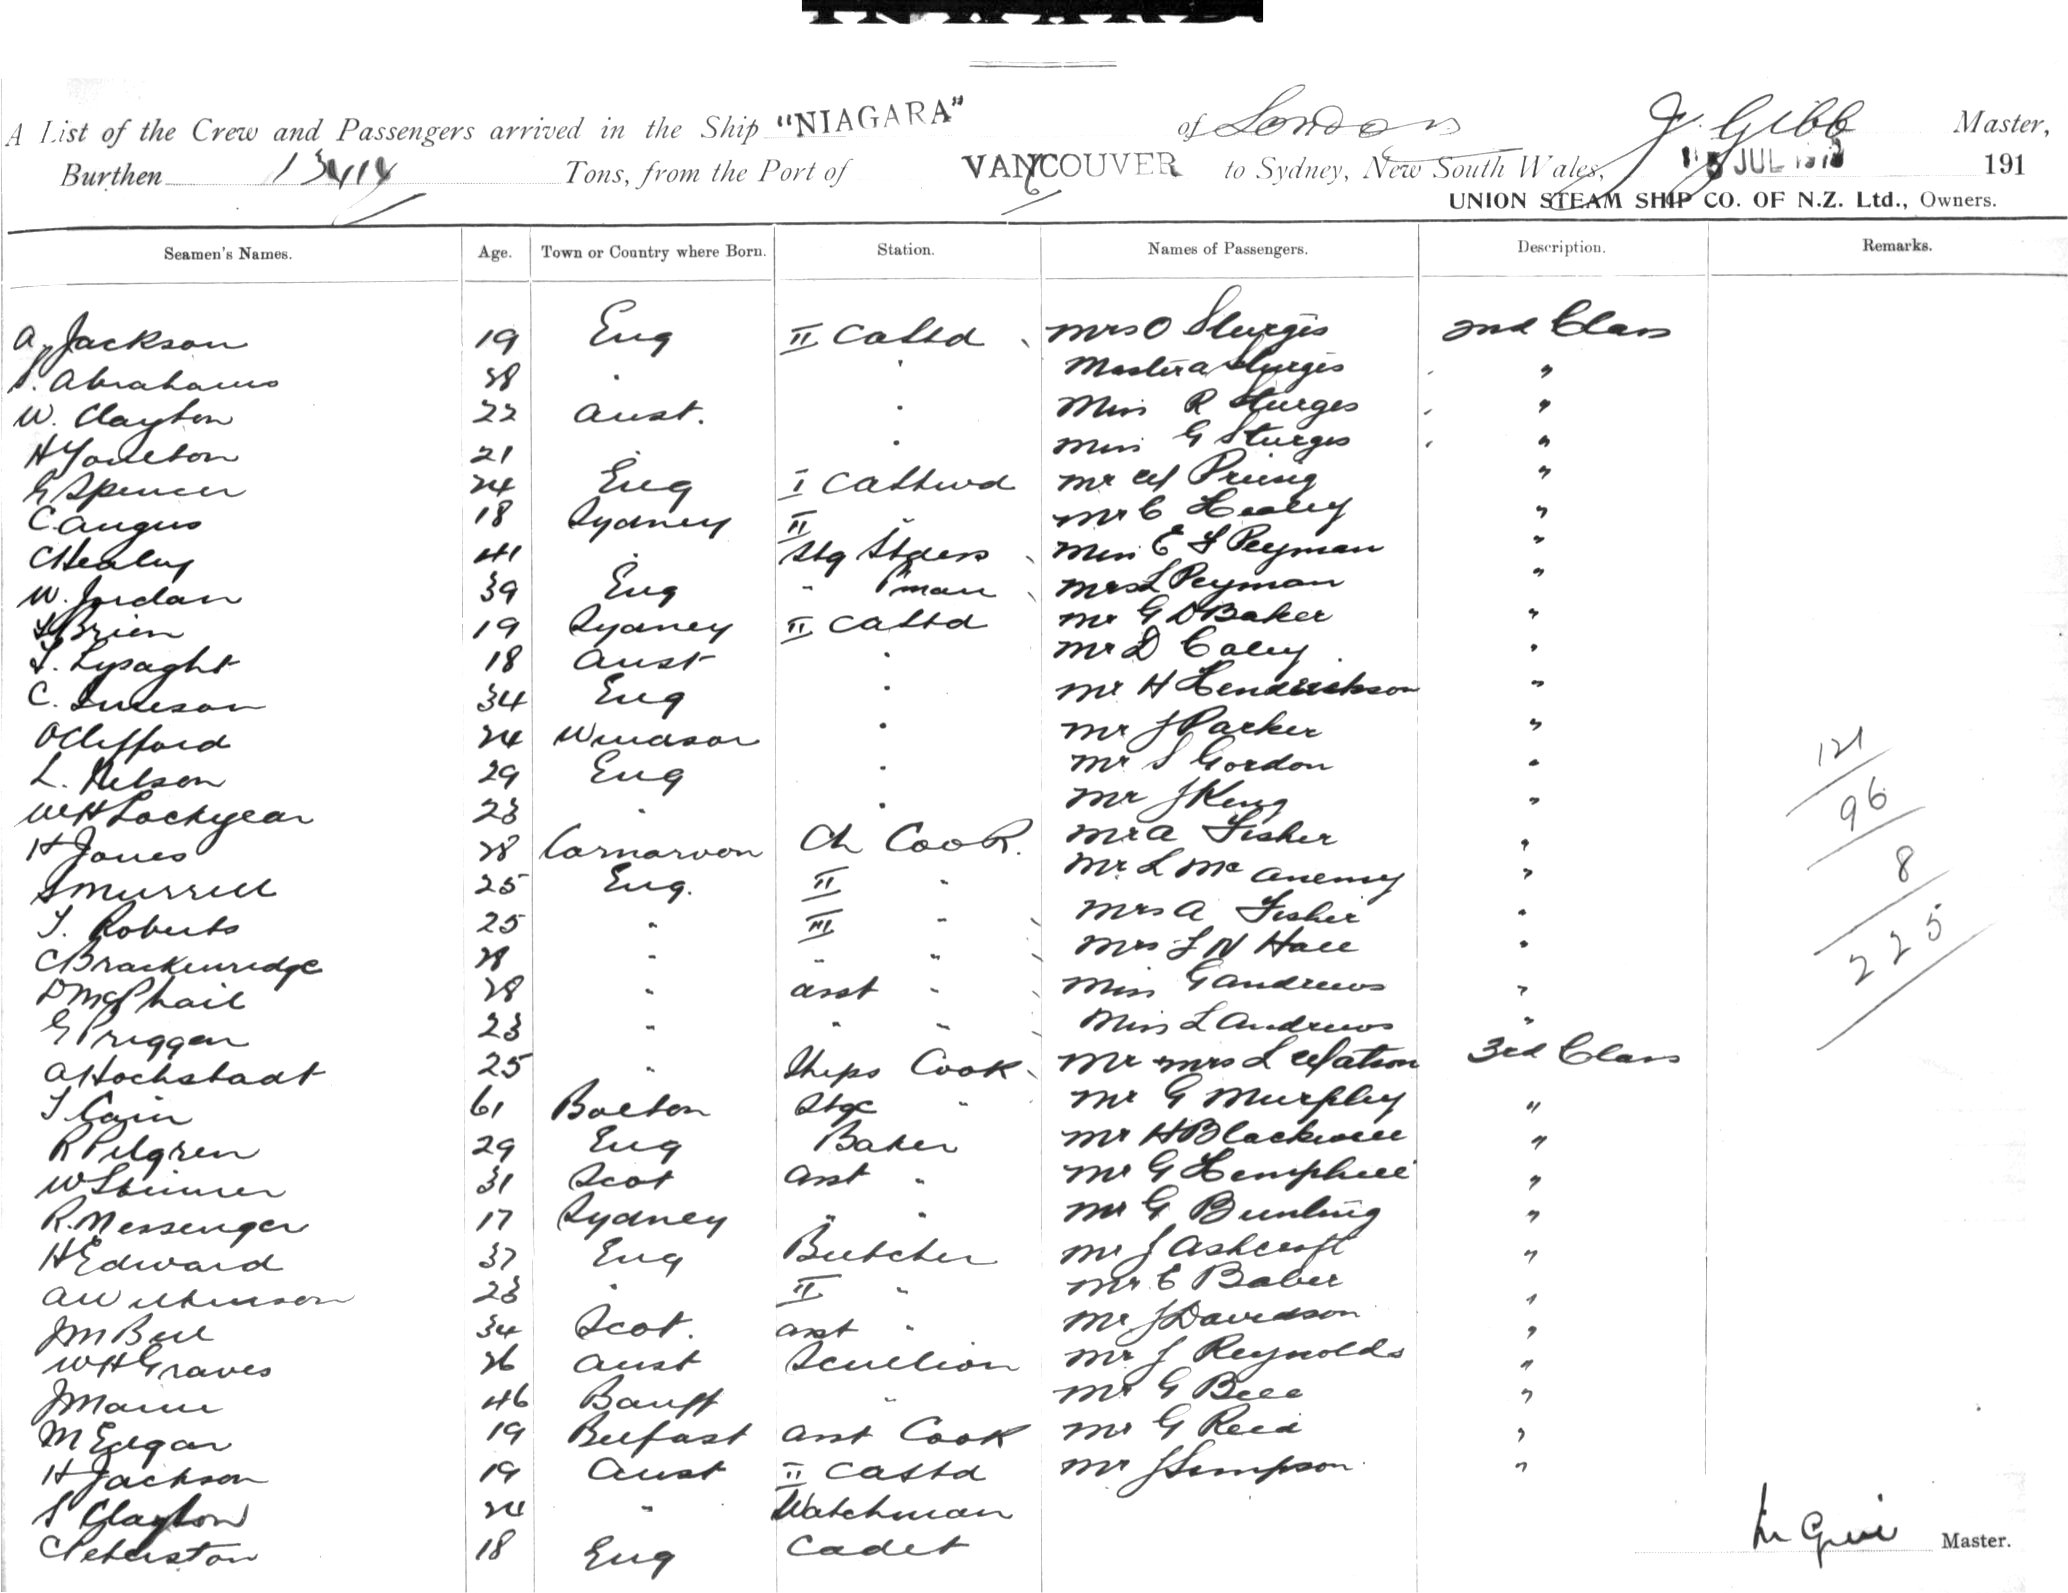 INWARD.
A List of the Crew and Passengers arrived in the Ship "NIAGARA" of London J. Gibb Master,
Burthen 13414 Tons, from the Port of VANCOUVER to Sydney, New South Wales, 5 JUL 191
UNION STEAM SHIP CO. OF N.Z. Ltd., Owners.
Seamen's Names. Age. Town or Country where Born. Station. Names of Passengers. Description. Remarks.
A. Jackson 19 Eng II Ca Std Mrs O Sturgis 2nd Class
Abrahams 28 " " Master A Sturgis "
W. Clayton 22 Aust. " Miss R Sturges "
H Youlton 21 " " Miss G Sturges "
G Spencer 24 Eng I Ca Stwd Mr W Pring "
C Angus 18 Sydney II " Mr C Healey "
C Healey 41 " Stg Stdess Miss E F Peyman "
W. Jordan 39 Eng " Pman Mrs L Peyman "
Brien 19 Sydney II Ca Std Mr G D Baker "
T. Lysaght 18 Aust " Mr D Caley "
C. 34 Eng " Mr H Hendrickson "
O Clifford 24 Windsor " Mr J Parker "
L. Nelson 29 Eng " Mr S Gordon " 121
W H Lockyear 23 " " Mr J King " 96
H Jones 28 Carnarvon Ch Cook. Mr A Fisher " 8
S Murrell 25 Eng. II " Mr L Mc Anemy " 225
T. Roberts 25 " III " Mrs A Fisher "
C Brackenredge 28 " " " Mrs F N Hall "
D McPhail 28 " Asst " Miss G Andrews "
G Priggen 23 " " " Miss L Andrews "
A Hochstadt 25 " Ships Cook Mr & Mrs L Watson 3rd Class
T Cain 61 Bolton Stge " Mr G Murphy "
R Pilgren 29 Eng Baker Mr H Blackwell "
W Skinner 31 Scot Asst " Mr G Hemphill "
R. Messenger 17 Sydney " " Mr G Bunting "
H Edward 37 Eng Butcher Mr J Ashcroft "
A Wilkinson 23 " II " Mr E Baber "
J M Bell 34 Scot. Asst " Mr J Davidson "
W H Graves 26 Aust Scullion Mr J Reynolds "
J Mann 46 Banff " Mr G Bell "
M Edgar 19 Belfast Asst Cook Mr G Reed "
H Jackson 19 Aust II Ca Std Mr J Simpson "
S Clayton 24 " Watchman
C Peterston 18 Eng Cadet Master.